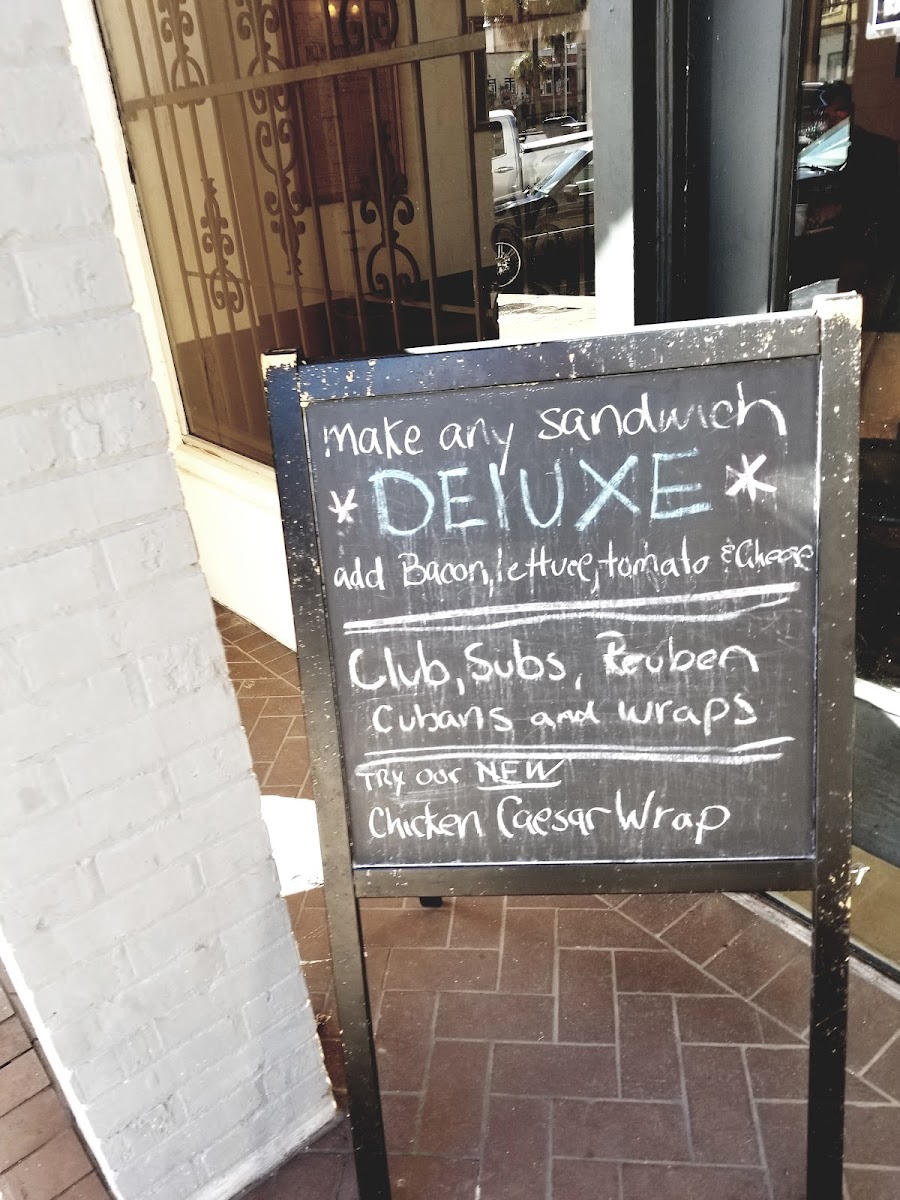 make any sandwich
* DElUXE *
add Bacon, lettuce, tomato & Cheese
Club, Subs, Reuben
Cubans and wraps
TRY our NEW
Chicken Caesar Wrap